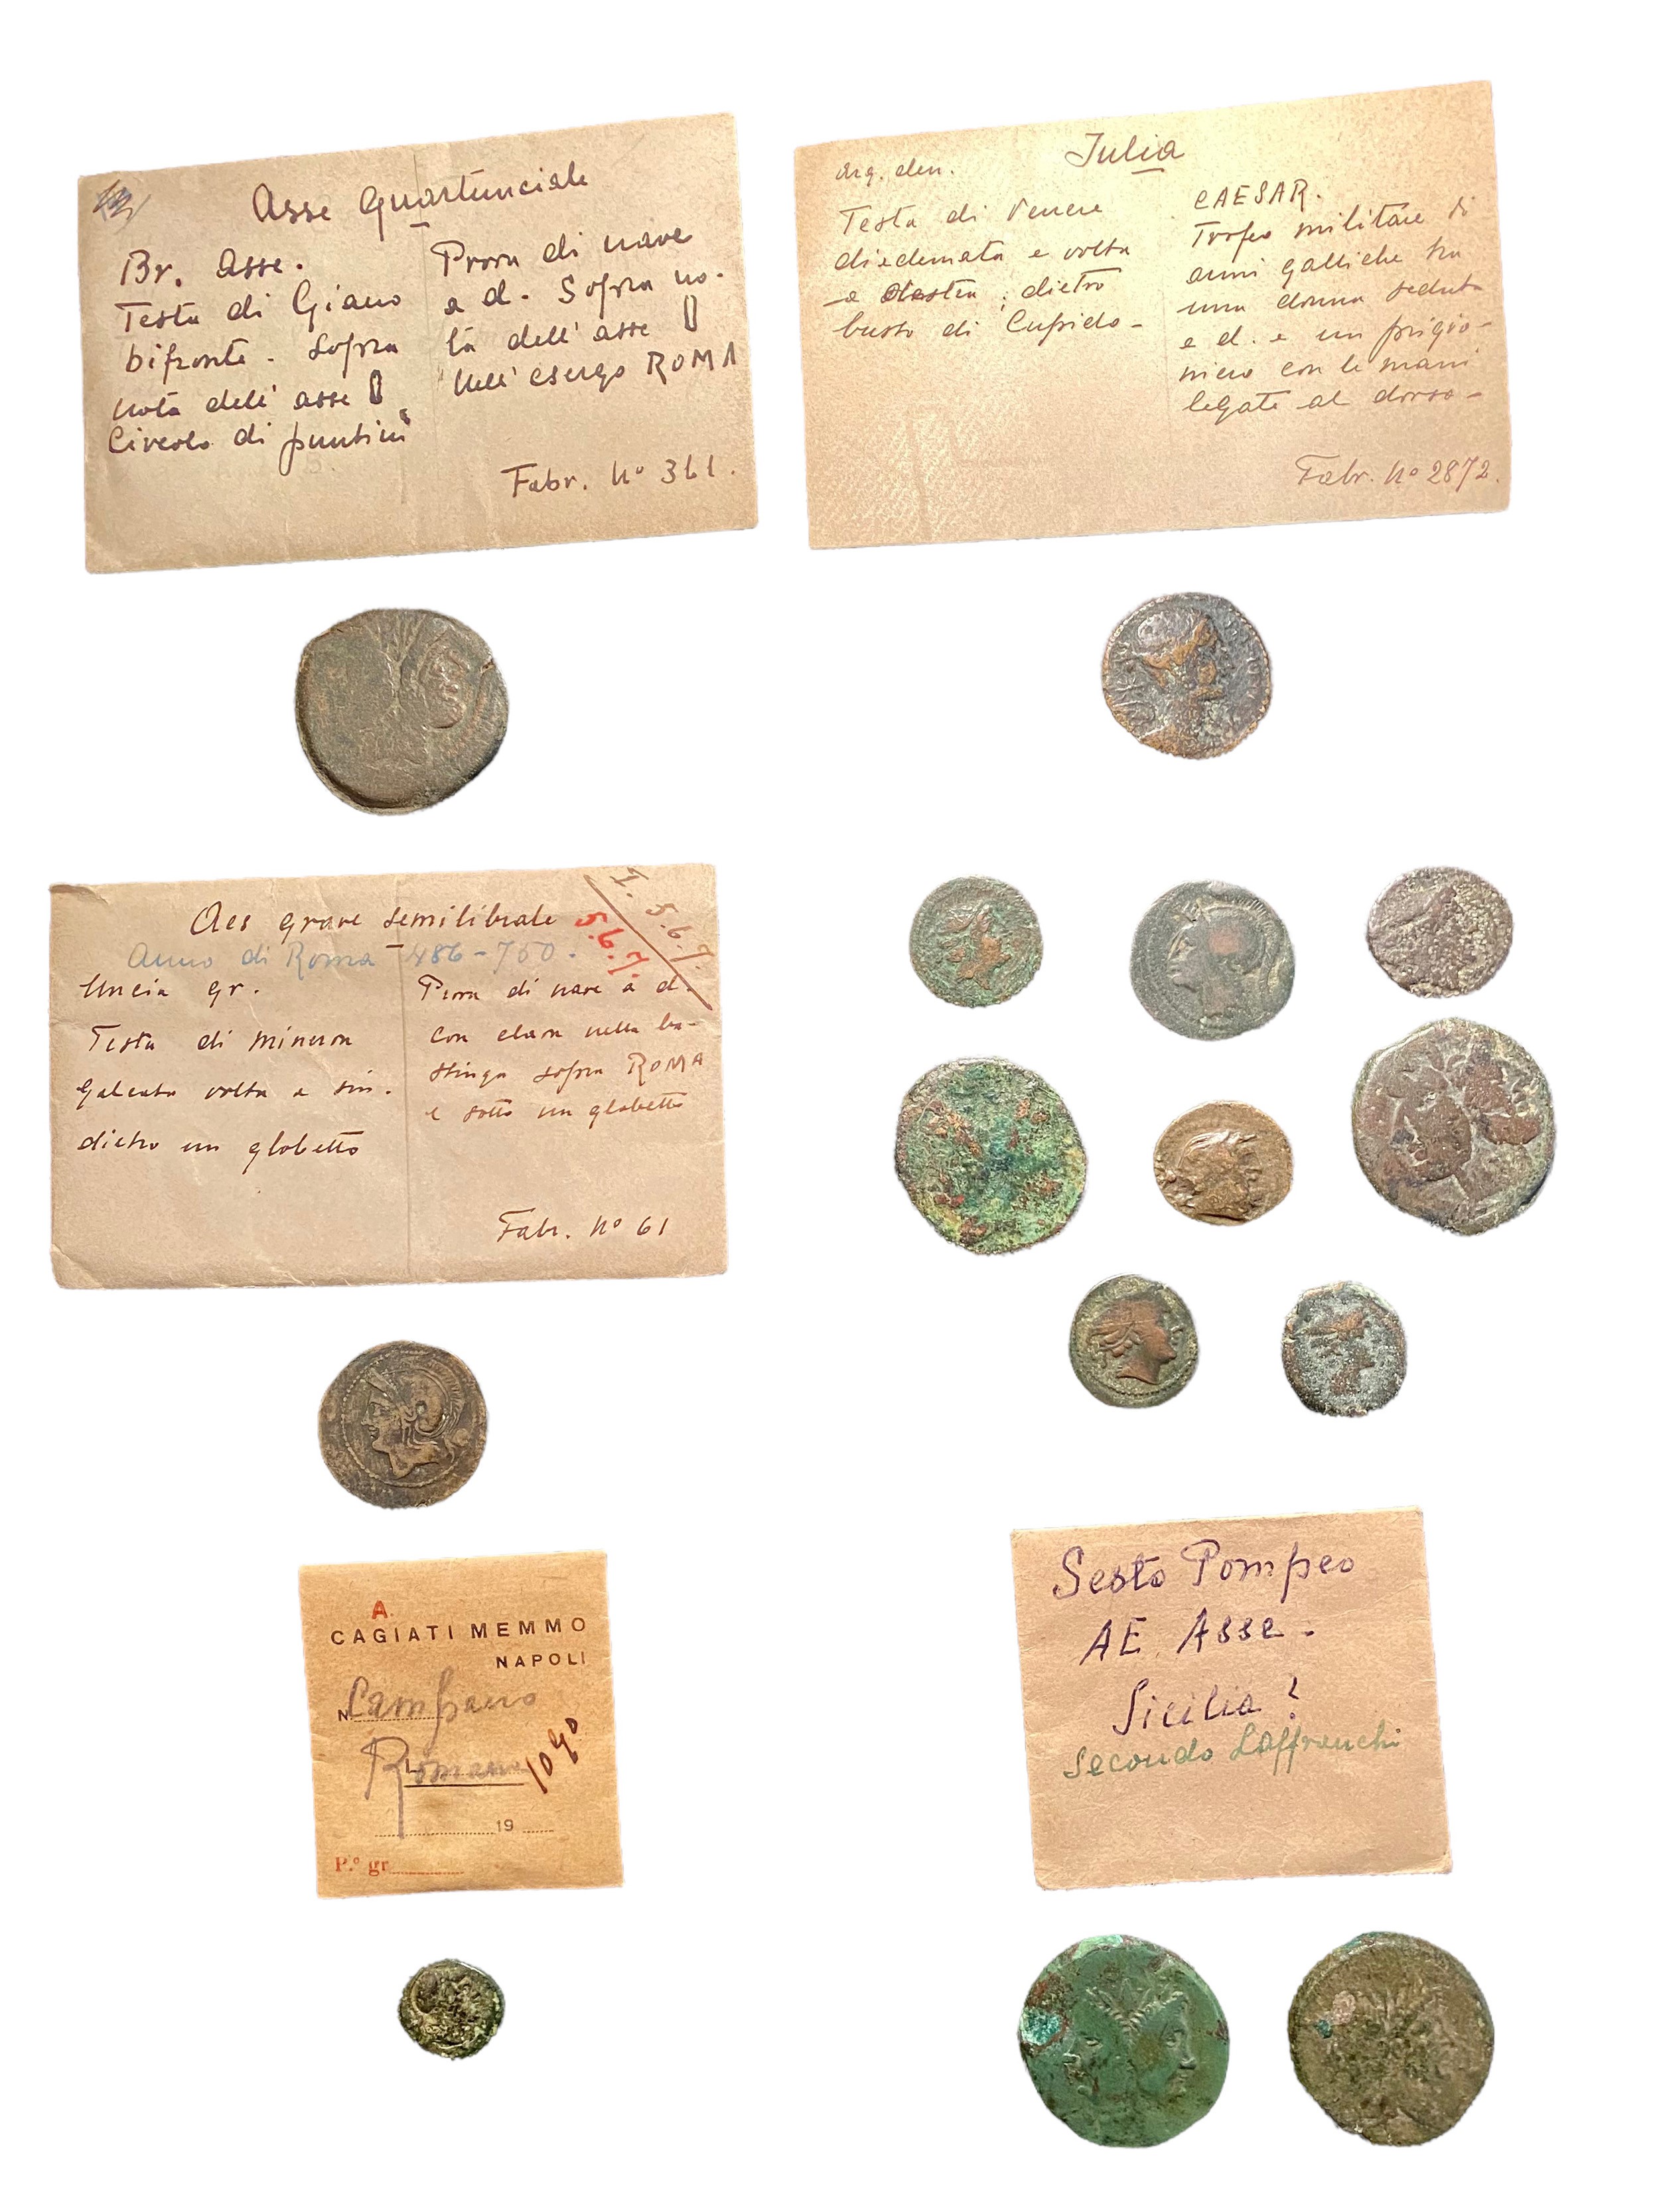 Asse Quartunciale
Br. Asse.
Testa di Giano
bifronte. Sopra
nota dell' asse
Circolo di puntini
Prora di nave
a d. Sopra no-
ta dell' asse
Nell' esergo ROMA
Fabr. Nº 361.
Iulia
arg. den.
Testa di Venere
diademata e volta
a destra; dietro
busto di Cupido-
CAESAR.
Trofeo militare di
armi galliche tra
una donna seduta
e d. e un prigio-
niero con le mani
legate al dorso-
Fabr. Nº 2872.
Aes grave semilibrale
Anno di Roma - 486-700.
5.6.7.
1. 5.6.7.
Uncia gr.
Testa di minerva
galeata volta a sin.
dietro un globetto
Prora di nave a d.
con clava nella ba-
stinga sopra ROMA
e sotto un globetto
Fabr. Nº 61
A.
CAGIATI MEMMO
NAPOLI
N. Campano
Romano
19
P.º gr.
Sesto Pompeo
AE Asse.
Sicilia?
Secondo Laffranchi